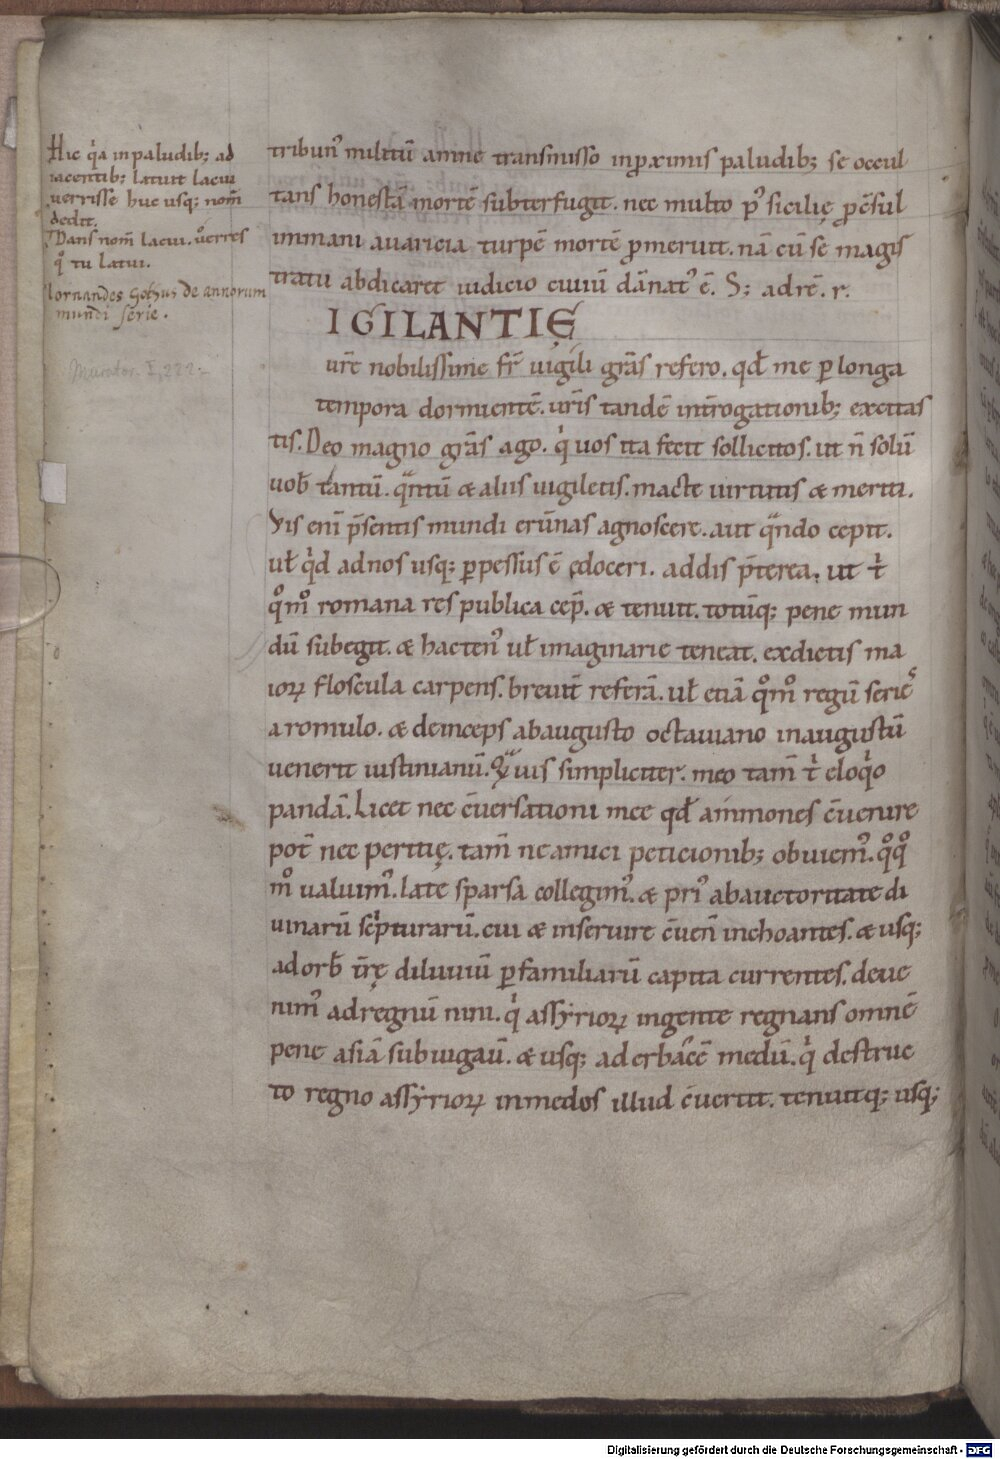 Hic q̇a inpaludib; ad
iacentib; latuit lacui
uerrisse huc usq; nom̄
dedit.
Dans nom̄ lacui. u̇erres
q̊ tu latui.
Iornandes Gothus de annorum
mundi serie.
Murator. I, 222.
tribun᾿ militū amne transmisso inꝓximis paludib; se occul
tans honestā mortē subterfugit. nec multo p᾿ sicilię ꝓc̄sul
immani auaricia turpē mortē ꝓmeruit. nā cū sē magis
tratu abdicaret iudicio ciuiū dānat᾿ ē. S; adrē. r.
IGILANTIĘ
ur̄e nobilissime fr̄ uigili gr̄as refero. qđ me ꝑ longa
tempora dormientē. ur̄is tandē int̄rogationib; excitas
tis. Deo magno gr̄as ago. q̇ uos ita fecit sollicitos. ut n̄ solū
uob̄ tantū. qᵃntū & aliis uigiletis. macte uirtutis & meriti.
Vis eni̅ p̄sentis mundi erūnas agnoscere. aut qᵃndo cepit.
uł q̇d adnos usq; ꝑpessus ē ędoceri. addis p̄terea. ut t̍
q̊m̊ romana res publica cep̄. & tenuit. totūq; pene mun
dū subegit. & hacten᾿ uł imaginarie teneat. exdictis ma
ioꝝ floscula carpens. breuit̄ referā. uł etiā q̊m̊ regū seriēˢ
aromulo. & deinceps abaugusto octauiano inaugustū
uenerit iustinianū. Qᵃuis simpliciter. meo tam̄ t̍ eloq̇o
pandā. Licet nec c̄uersationi mee qđ ammones c̄uenire
pot̄ nec peritię. tam̄ ne amici peticionib; obuiem᾿. q̊q̊
m̊ ualuim᾿. late sparsa collegim᾿. & pri᾿ abauctoritate di
uinarū sc̍pturarū. cui & inseruire c̄uen̄ inchoantes. & usq;
adorb̄ t̄rę diluuiū ꝑ familiarū capita currentes. deue
nim᾿ adregnū nini. q̇ assyrioꝝ ingente regnans omnē
pene asiā subiugau̅. & usq; ad erbacē medū. q̇ destruc
to regno assyrioꝝ inmedos illud c̄uertit. tenuitq; usq;
Digitalisierung gefördert durch die Deutsche Forschungsgemeinschaft - DFG